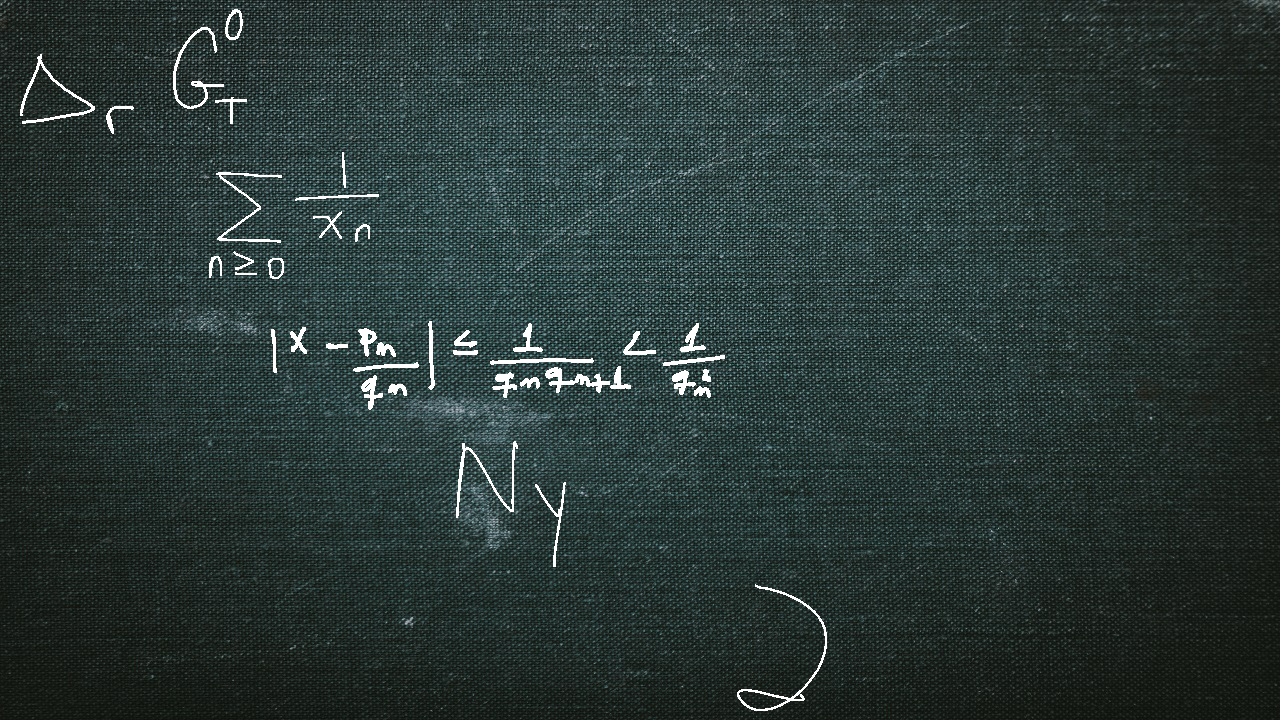 Δ_r G_T^0
∑_{n≥0} 1/x_n
|x - p_n/q_n| ≤ 1/(q_n q_{n+1}) < 1/q_n^2
N_y
2